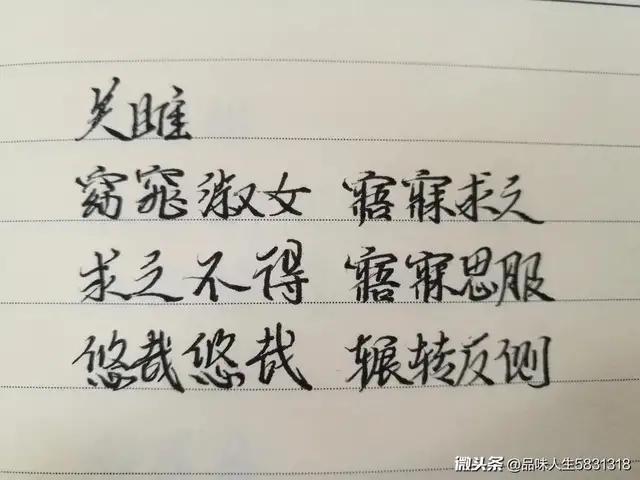 关雎
窈窕淑女 寤寐求之
求之不得 寤寐思服
悠哉悠哉 辗转反侧
微头条 @品味人生5831318